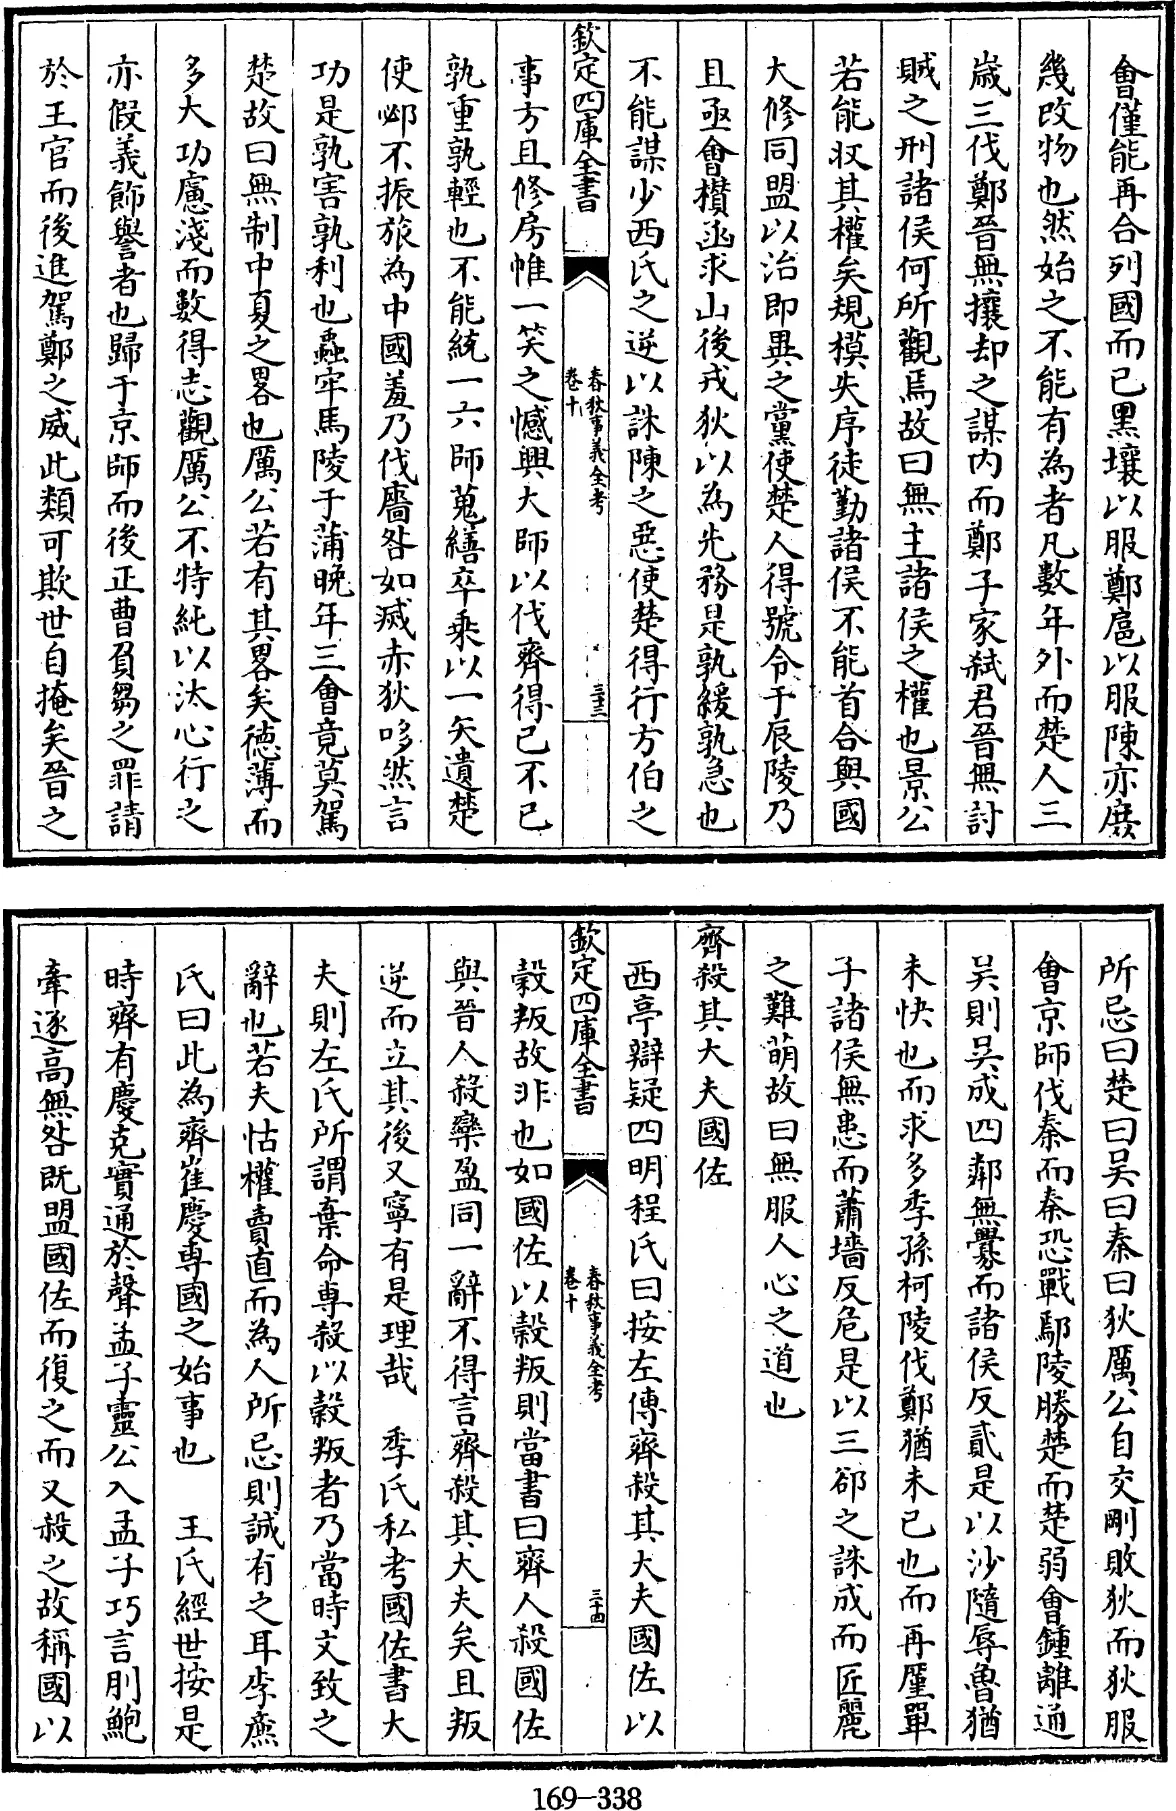 會僅能再合列國而已黑壤以服鄭扈以服陳亦庶
幾改物也然始之不能有為者凡數年外而楚人三
歲三伐鄭晉無攘却之謀内而鄭子家弑君晉無討
賊之刑諸侯何所觀焉故曰無主諸侯之權也景公
若能収其權矣規模失序徒勤諸侯不能首合與國
大修同盟以治即異之黨使楚人得號令于辰陵乃
且亟會欑函求山後戎狄以為先務是孰緩孰急也
不能謀少西氏之逆以誅陳之惡使楚得行方伯之
欽定四庫全書
春秋事義全考
卷十
三十三
事方且修房帷一笑之憾興大師以伐齊得已不已
孰重孰輕也不能統一六師蒐繕卒乗以一矢遺楚
使邲不振旅為中國羞乃伐廧咎如滅赤狄哆然言
功是孰害孰利也蟲牢馬陵于蒲晚年三會竟莫駕
楚故曰無制中夏之畧也厲公若有其畧矣徳薄而
多大功慮淺而數得志觀厲公不特純以汰心行之
亦假義飾譽者也歸于京師而後正曹負芻之罪請
於王官而後進駕鄭之威此類可欺世自掩矣晉之
所忌曰楚曰吴曰秦曰狄厲公自交剛敗狄而狄服
會京師伐秦而秦恐戰鄢陵勝楚而楚弱會鍾離通
吴則吴成四鄰無釁而諸侯反貳是以沙隨辱魯猶
未快也而求多季孫柯陵伐鄭猶未已也而再屢單
子諸侯無患而蕭墻反危是以三郤之誅成而匠麗
之難萌故曰無服人心之道也
齊殺其大夫國佐
西亭辯疑四明程氏曰按左傳齊殺其大夫國佐以
欽定四庫全書
春秋事義全考
卷十
三十四
榖叛故非也如國佐以榖叛則當書曰齊人殺國佐
與晉人殺欒盈同一辭不得言齊殺其大夫矣且叛
逆而立其後又寧有是理哉 季氏私考國佐書大
夫則左氏所謂棄命専殺以榖叛者乃當時文致之
辭也若夫怙權賣直而為人所忌則誠有之耳李廉
氏曰此為齊崔慶専國之始事也 王氏經世按是
時齊有慶克實通於聲孟子靈公入孟子巧言刖鮑
牽逐高無咎既盟國佐而復之而又殺之故稱國以
169-338